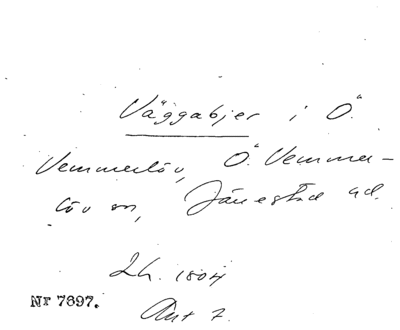 Väggabjer i Ö.
Vemmerlöv, Ö. Vemmer-
löv sn, Järrestad hd.
Lh. 1804
Nr 7897.
Akt 7.